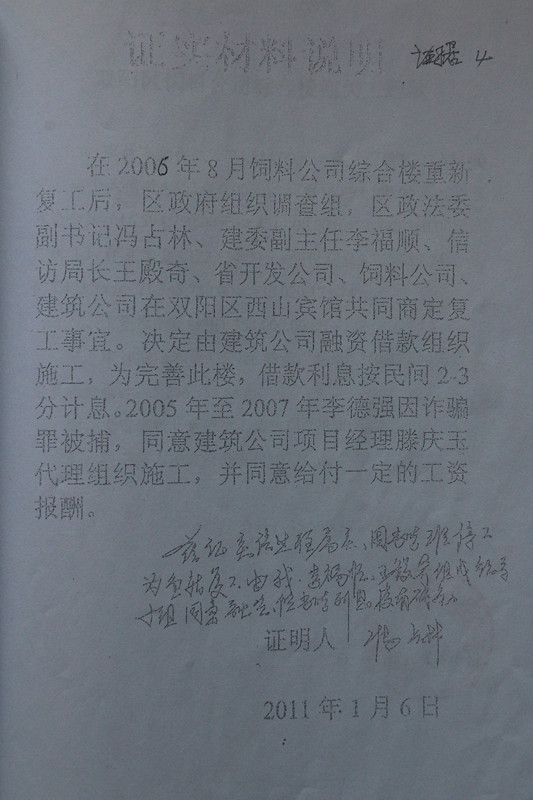 证实材料说明
证据 4
在2006年8月饲料公司综合楼重新
复工后，区政府组织调查组，区政法委
副书记冯占林、建委副主任李福顺、信
访局长王殿奇、省开发公司、饲料公司、
建筑公司在双阳区西山宾馆共同商定复
工事宜。决定由建筑公司融资借款组织
施工，为完善此楼，借款利息按民间2-3
分计息。2005年至2007年李德强因诈骗
罪被捕，同意建筑公司项目经理滕庆玉
代理组织施工，并同意给付一定的工资
报酬。
证明人
2011年1月6日